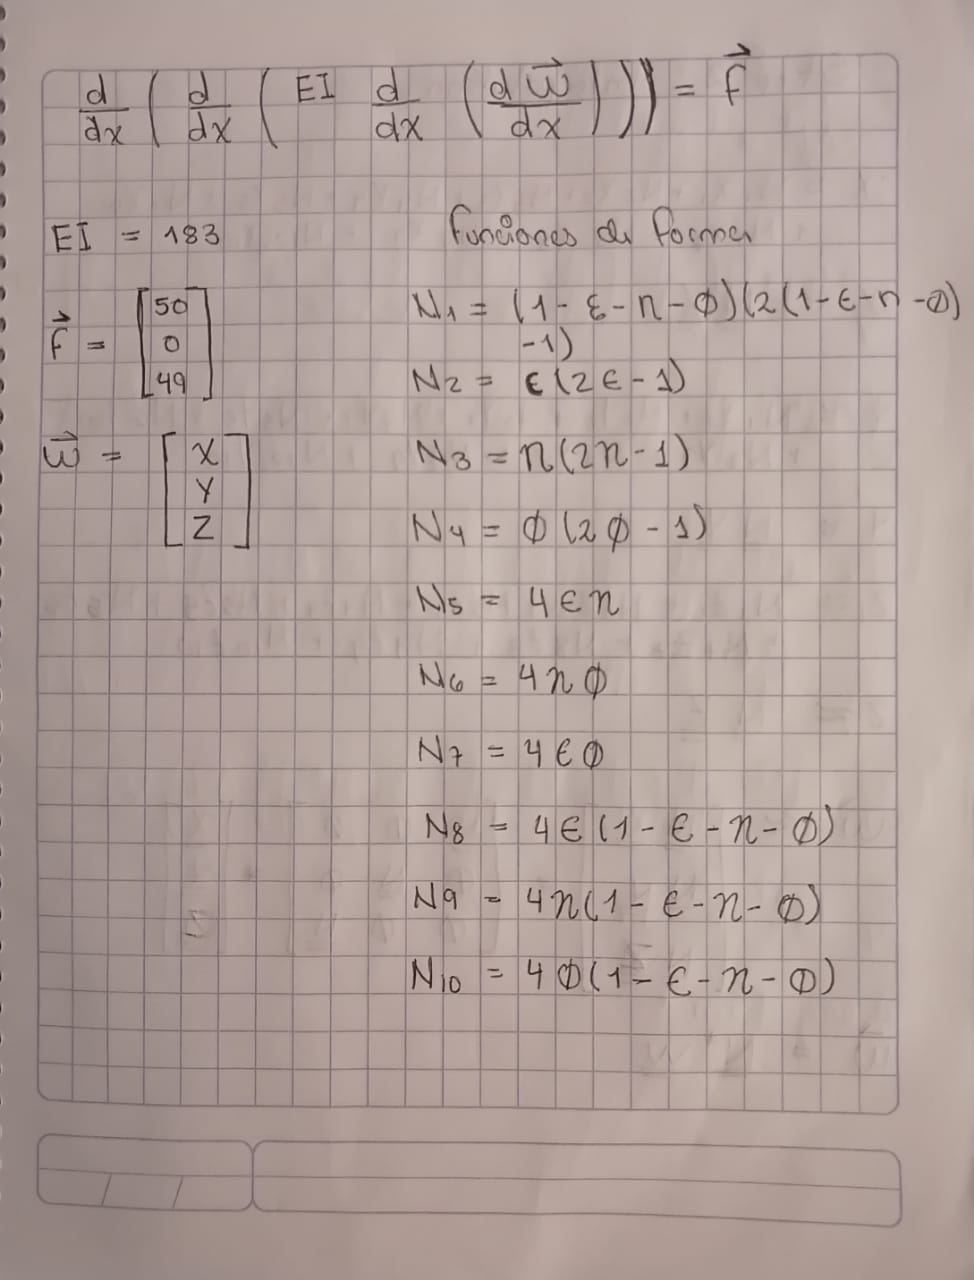 d/dx ( d/dx ( EI d/dx ( d w⃗/dx ) ) ) = f⃗
EI = 183
f⃗ = [50 0 49]
w⃗ = [X Y Z]
funciones de forma
N1 = (1 - ε - n - φ)(2(1 - ε - n - φ)
-1)
N2 = ε(2ε - 1)
N3 = n(2n - 1)
N4 = φ(2φ - 1)
N5 = 4εn
N6 = 4nφ
N7 = 4εφ
N8 = 4ε(1 - ε - n - φ)
N9 = 4n(1 - ε - n - φ)
N10 = 4φ(1 - ε - n - φ)